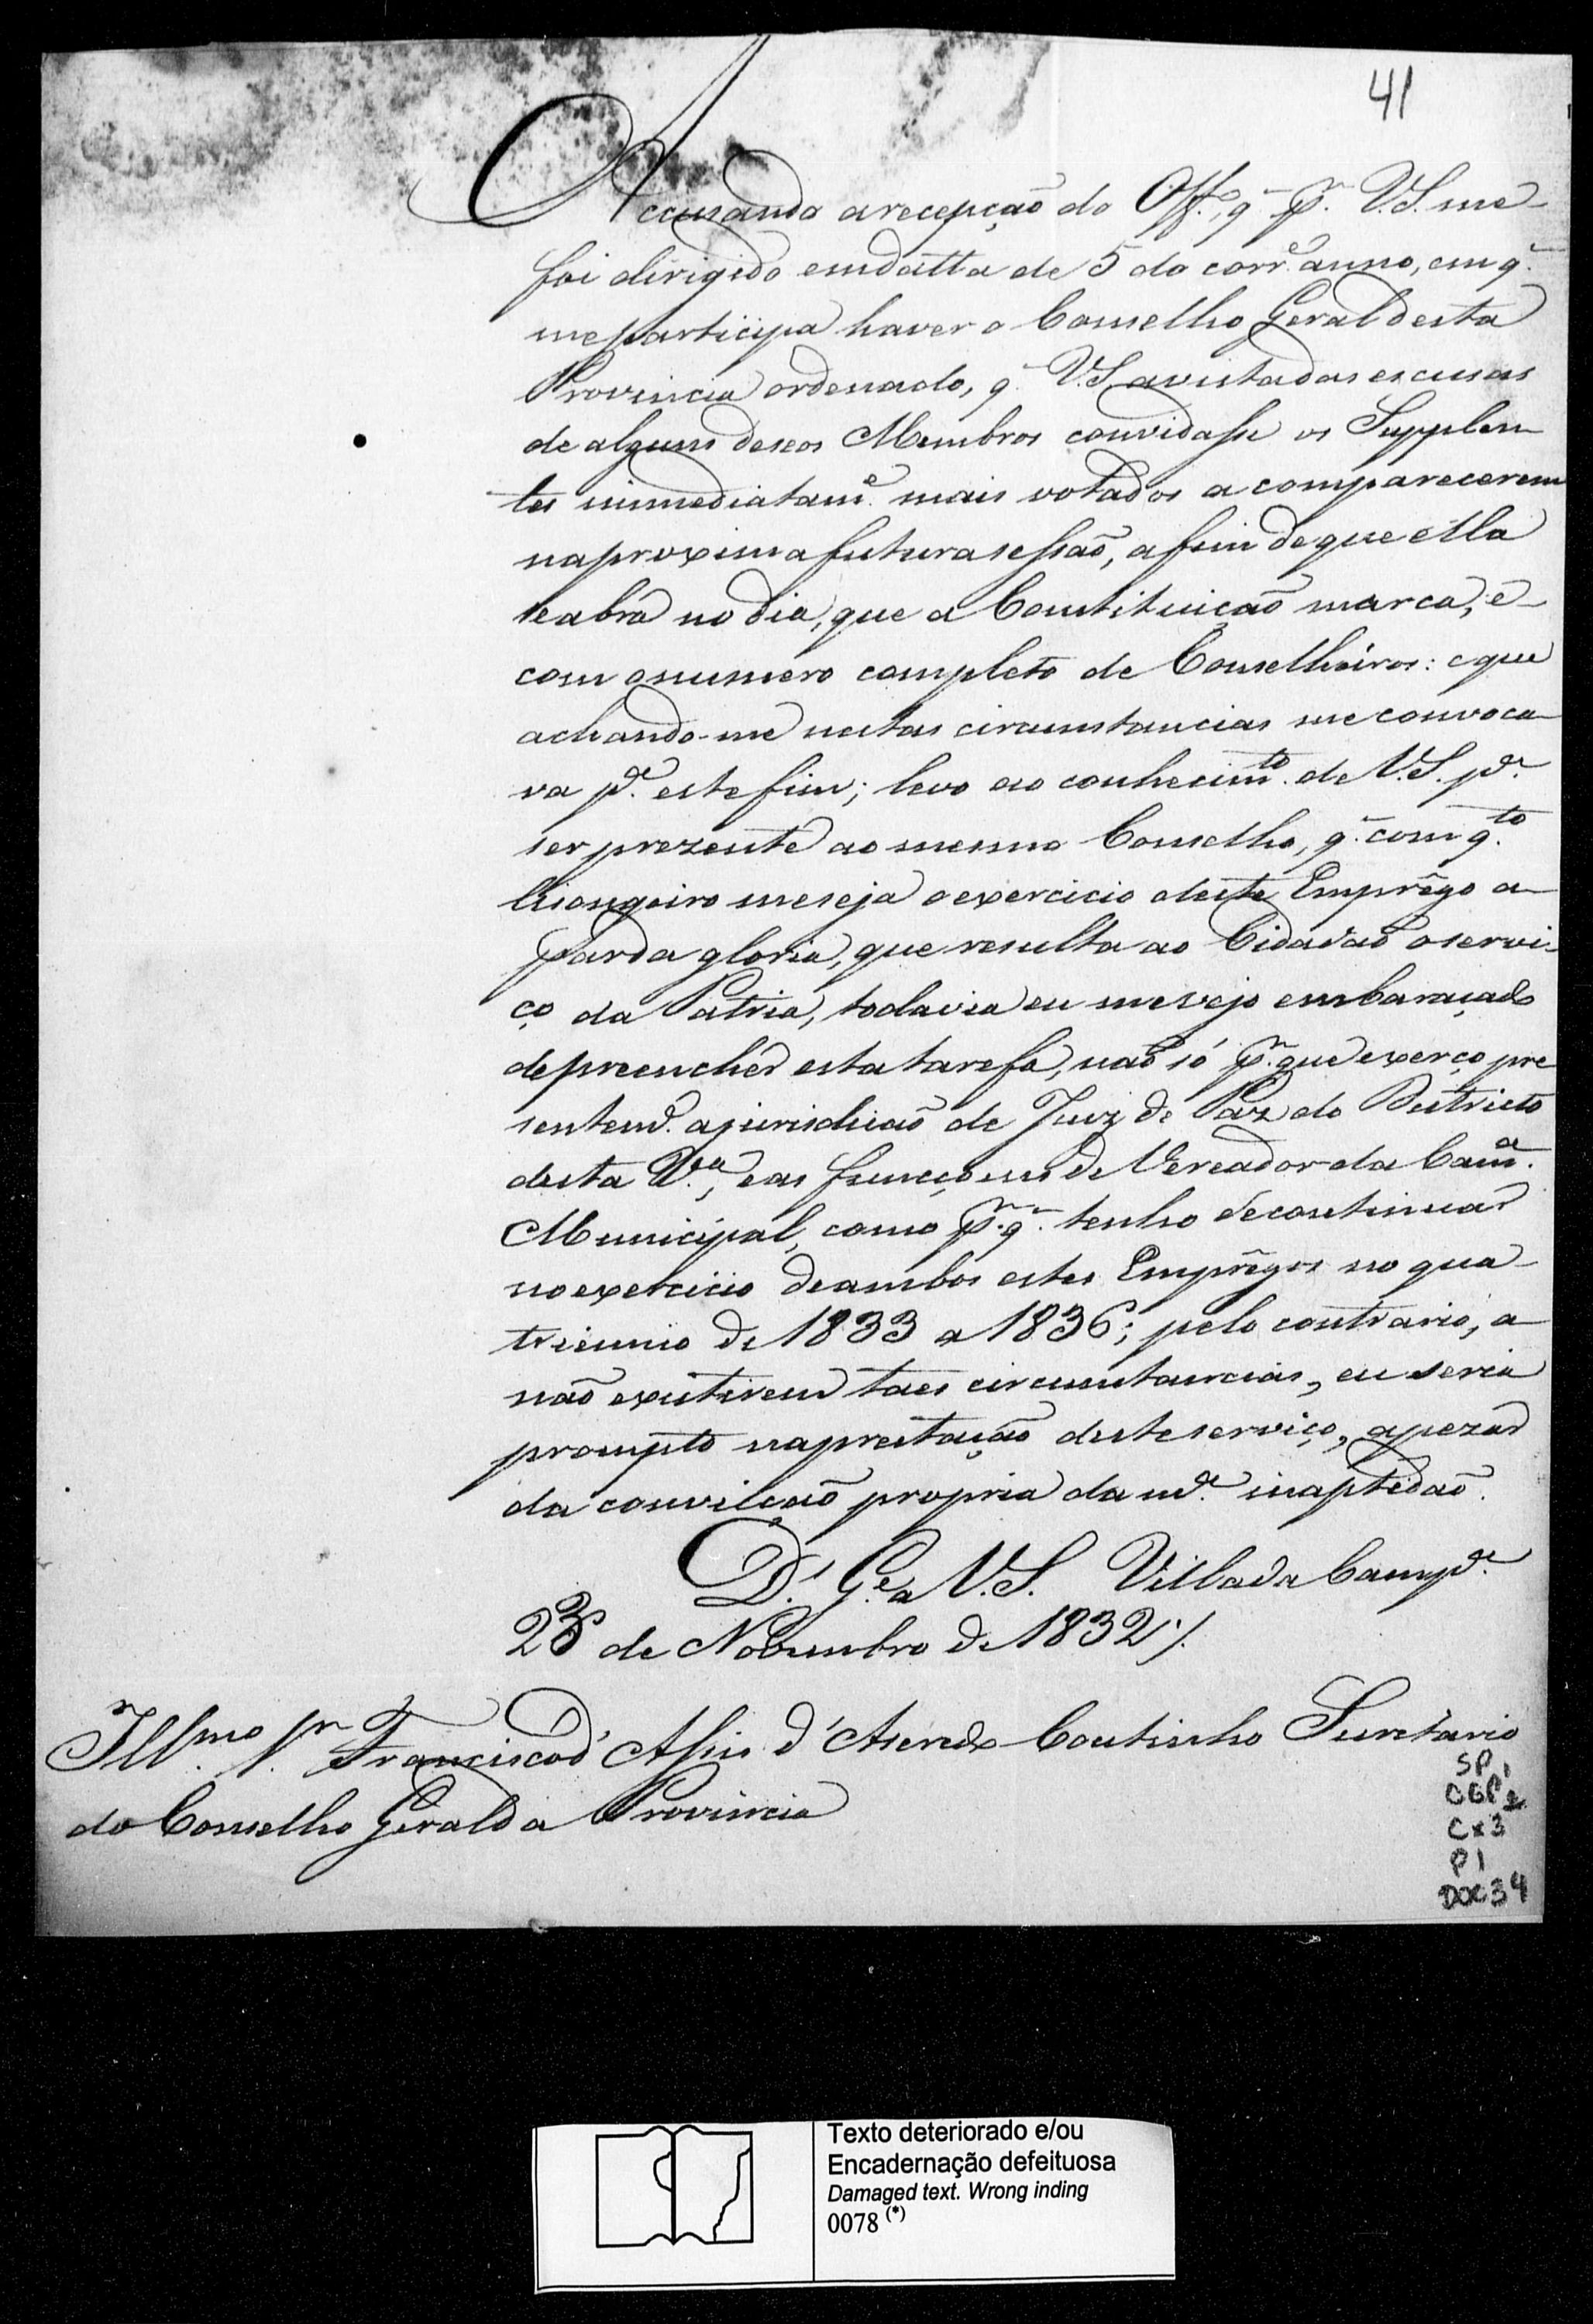 41
Accusando a recepção do Off.º, q̃ p.r V.S. me
foi dirigido em datta de 5 do corr.e anno, em q̃
me participa haver o Conselho Geral desta
Provincia ordenado, q̃ V.S. avista das escusas
de alguns deseos Membros convidasse os Supplen
tes immediatam.e mais votados a comparecerem
na proxima futura sessão, a fim de que ella
se abra no dia, que a Constituição marca, e
com o numero completo de Conselheiros: e que
achando-me nestas circumstancias me convoca
va p.a este fim; levo ao conhecim.to de V.S. p.a
ser prezente ao mesmo Conselho, q̃ com q.to
lisongeiro me seja o exercicio deste Emprêgo a
par da gloria, que resulta ao Cidadão o servi-
ço da Patria, todavia eu me vejo embaraçado
de preencher esta tarefa, não só p.r que exerço pre
sentem.e a jurisdicão de Juiz de Paz do Districto
desta V.a, e as funcçoens de Vereador da Cam.a
Municipal, como p.r q̃ tenho de continuar
no exercicio de ambos estes Emprêgos no qua
triennio de 1833 a 1836; pelo contrario, a
não existirem taes circumstancias, eu seria
prompto na prestação deste serviço, apezar
da convicção propria da m.a inaptidão.
D.s G.e a V.S. Villa da Camp.a
23 de Novembro de 1832 /.
Ill.mo Sr. Francisco d'Assis d'Aseredo Coutinho Secretario
do Conselho Geral da Provincia
SP 1
CGP 2
Cx 3
P 1
DOC 34
Texto deteriorado e/ou
Encadernação defeituosa
Damaged text. Wrong inding
0078 (*)